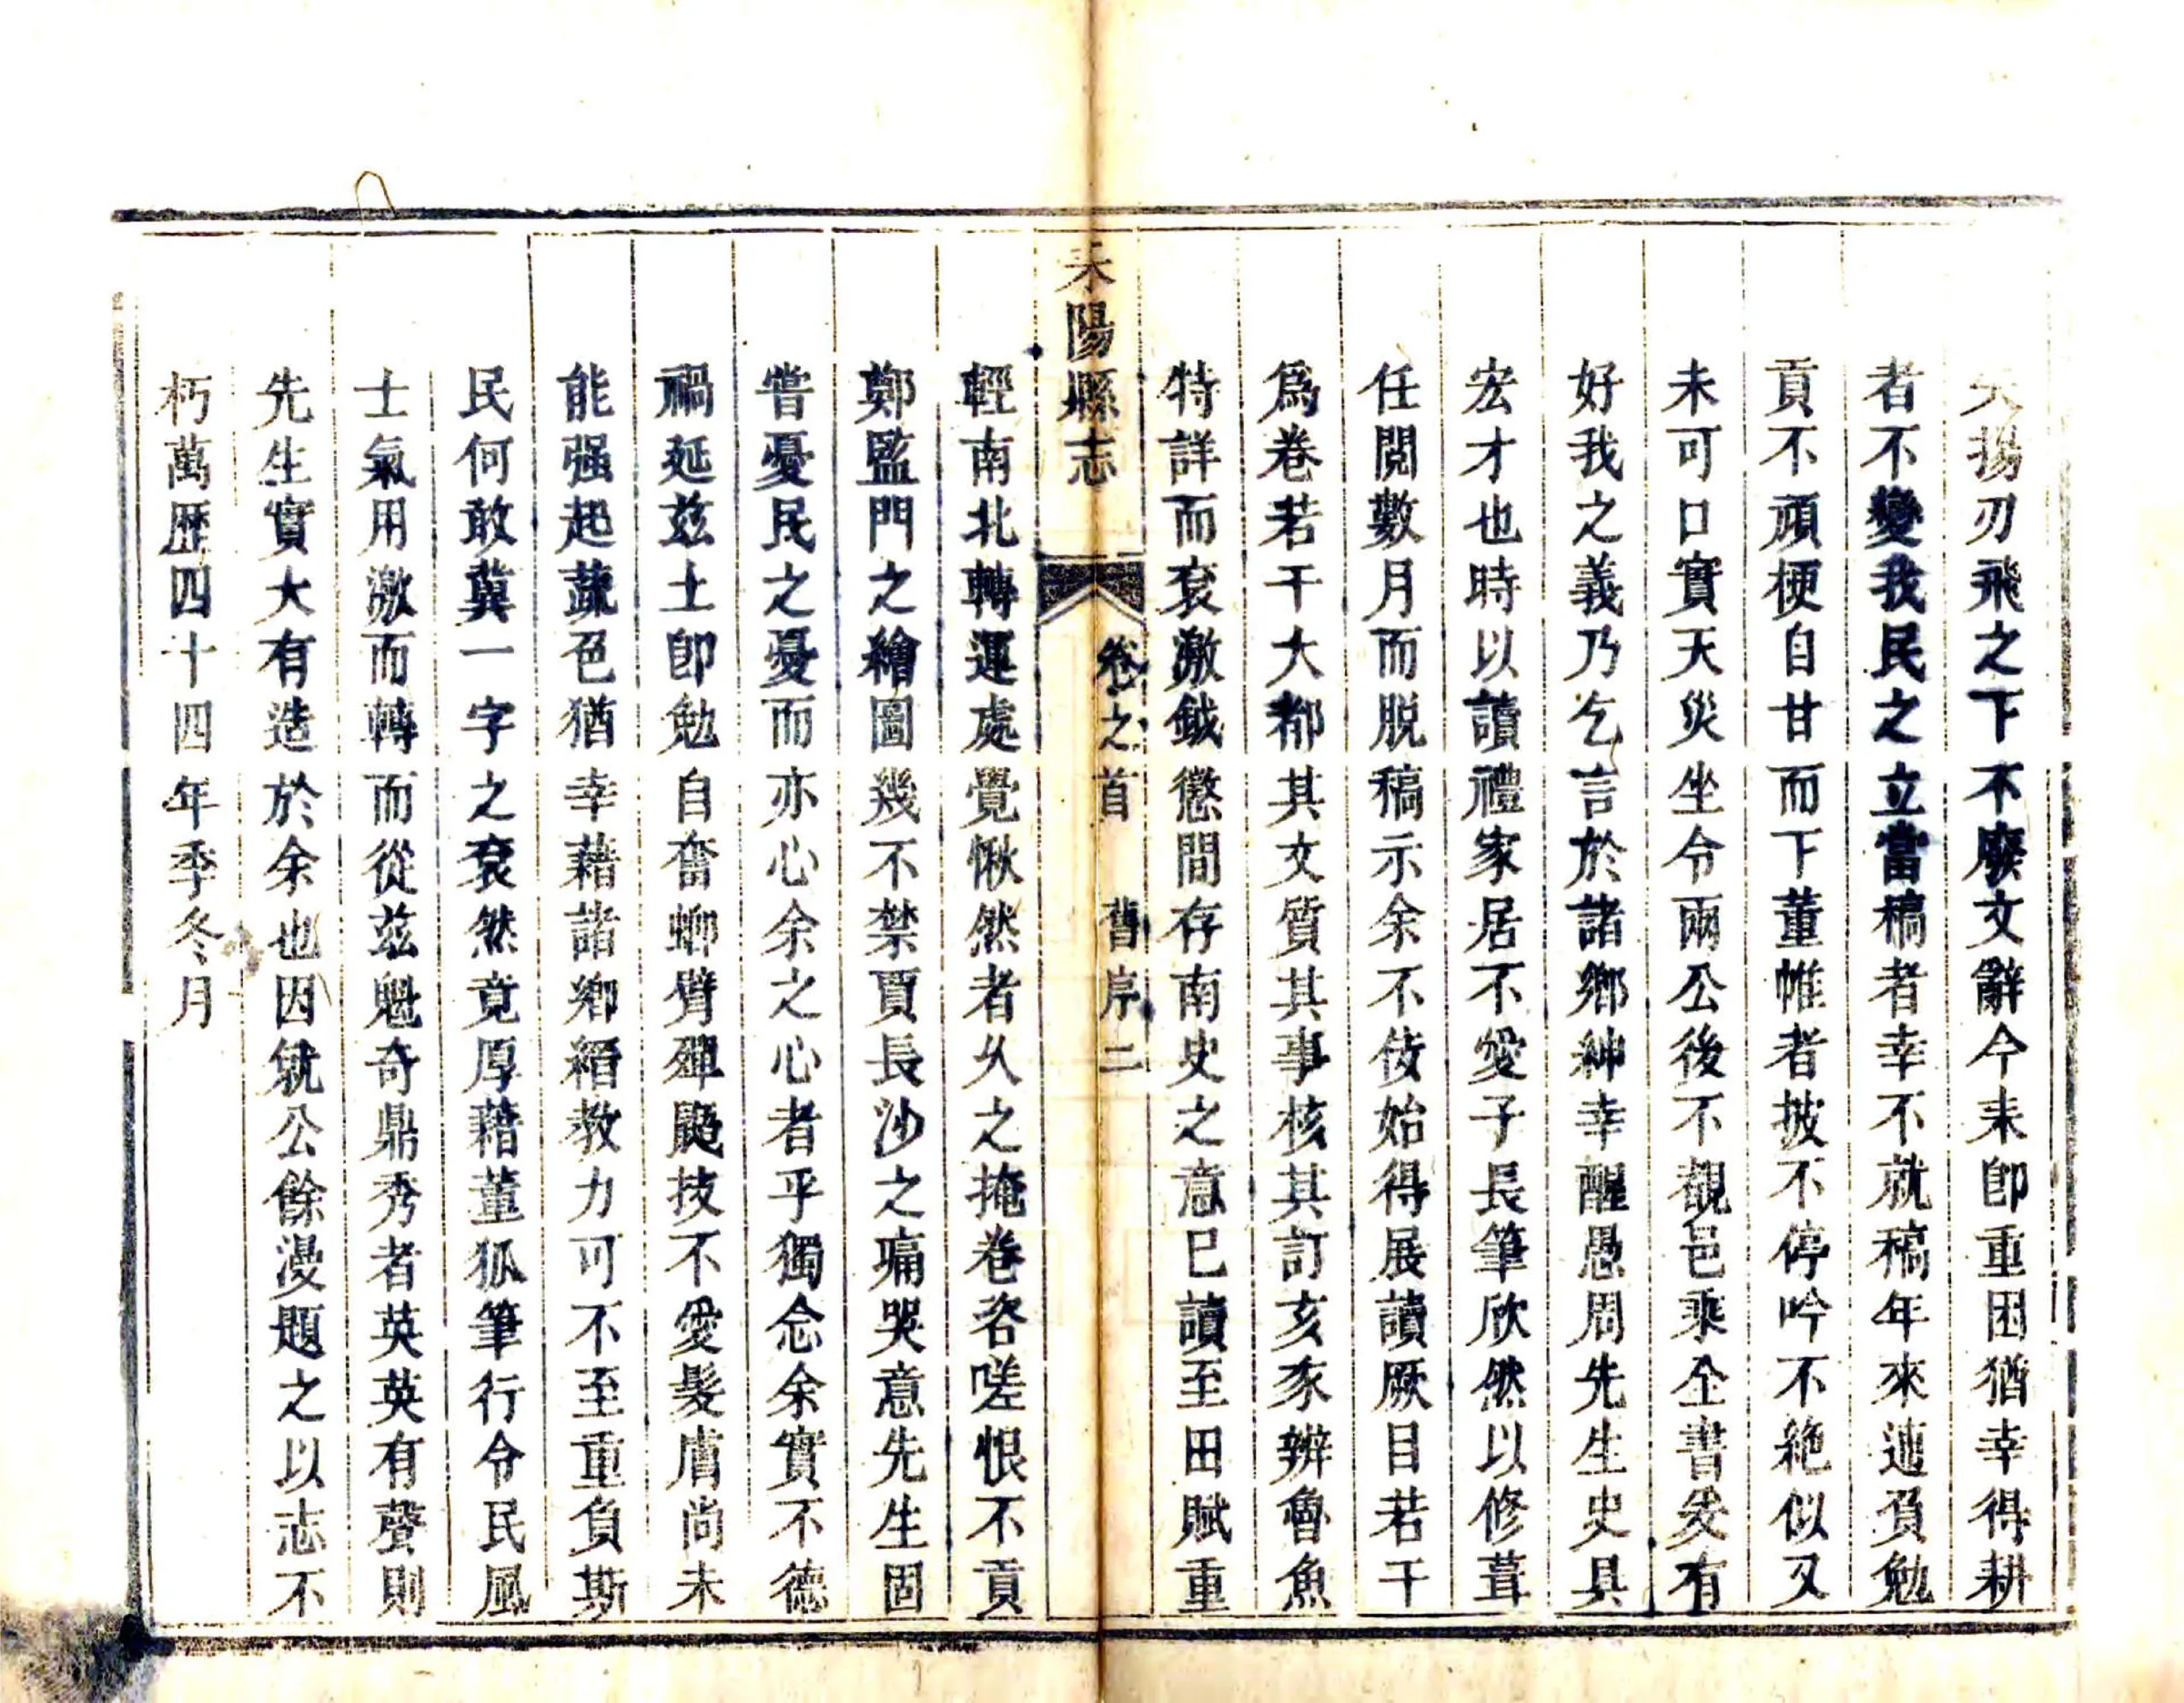 揚刃飛之下不廢文辭今耒卽重困猶幸得耕
者不變我民之立當稿者幸不就稿年來逋負勉
貢不頑梗自甘而下董帷者披不停吟不絶似又
未可口實天災坐令兩公後不覩邑乘全書爰有
好我之義乃乞言於諸鄉紳幸醒愚周先生史具
宏才也時以讀禮家居不愛子長筆欣然以修葺
任閱數月而脱稿示余不佞始得展讀厥目若干
爲卷若干大都其文質其事核其訂亥豕辨魯魚
特詳而袞激鉞懲間存南史之意已讀至田賦重
耒陽縣志 卷之首 舊序 二
輕南北轉運處覺愀然者久之掩卷咨嗟恨不貢
鄭監門之繪圖幾不禁賈長沙之痛哭意先生固
嘗憂民之憂而亦心余之心者乎獨念余實不德
禍延茲土卽勉自奮螂臂殫鼯技不愛髮膚尚未
能强起蔬色猶幸藉諸鄉縉教力可不至重負斯
民何敢冀一字之袞然竟厚藉董狐筆行令民風
士氣用激而轉而從茲魁奇鼎秀者英英有聲則
先生實大有造於余也因就公餘漫題之以志不
朽萬歷四十四年季冬月